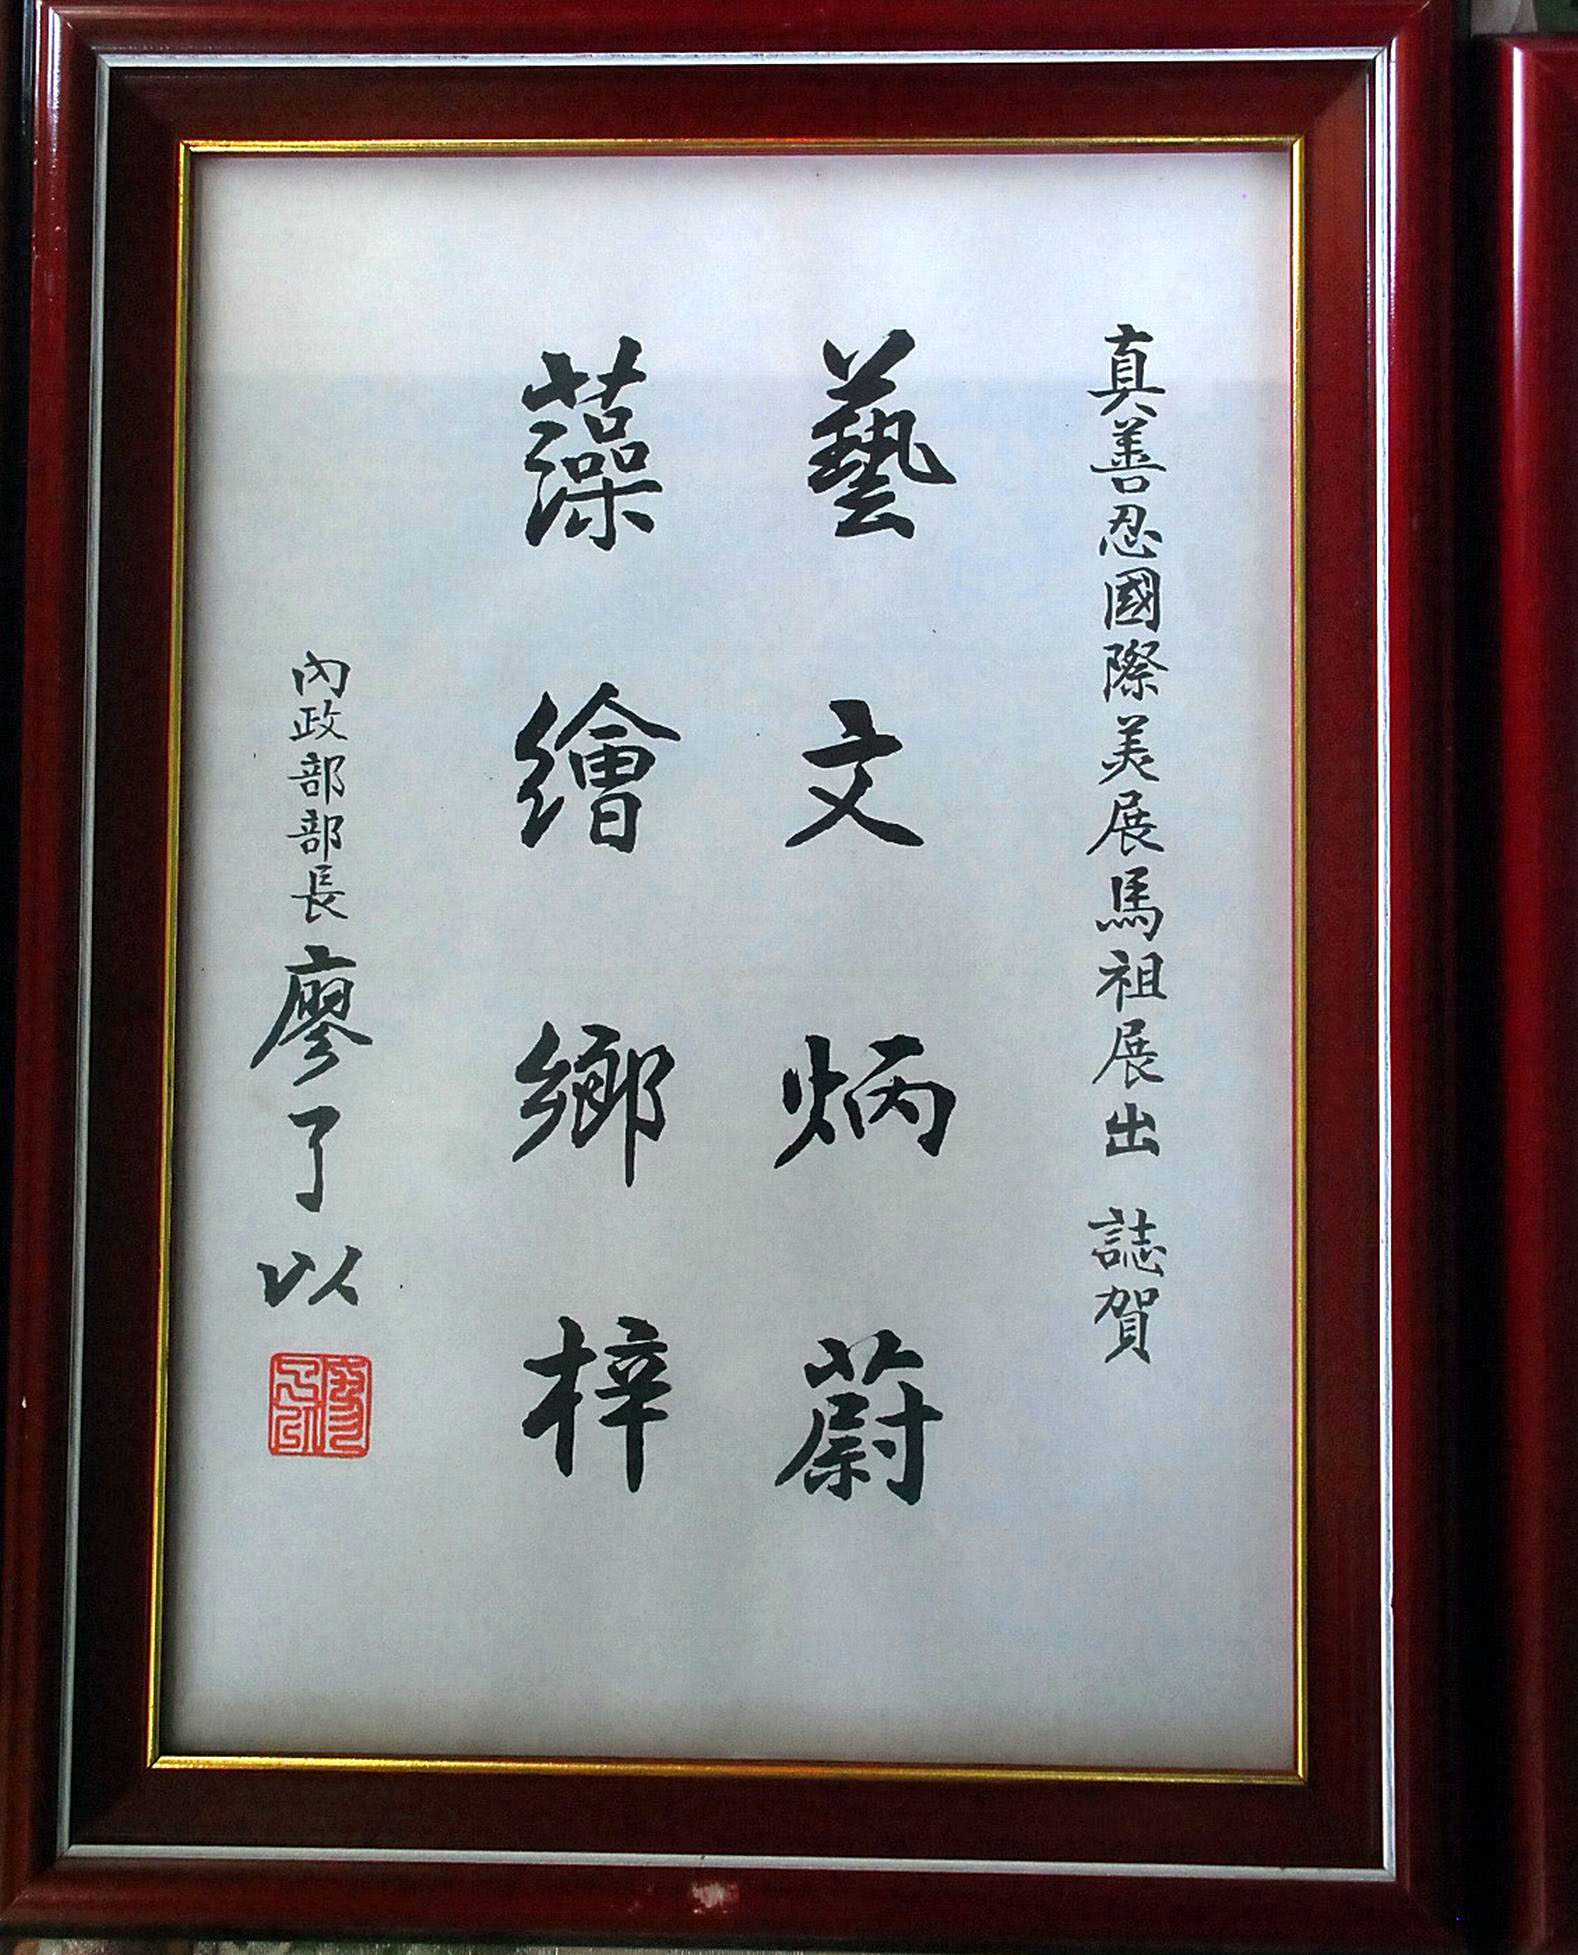 真善忍國際美展馬祖展出 誌賀
藝文炳蔚
藻繪鄉梓
內政部部長廖了以